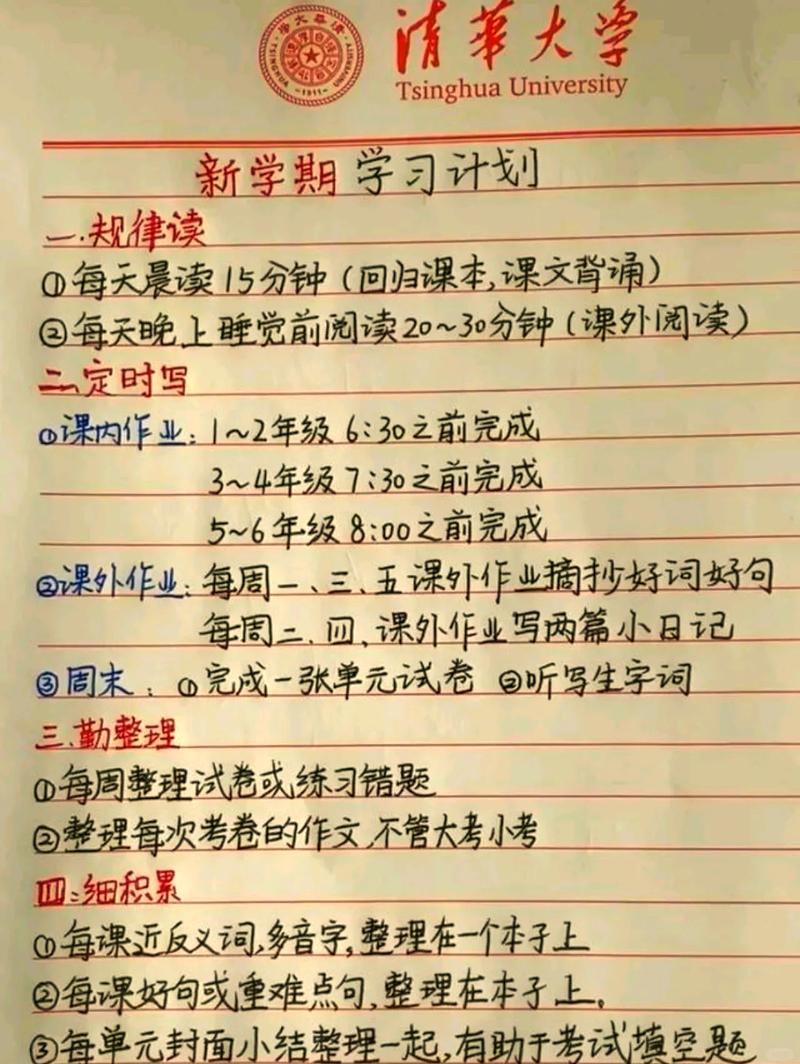 清华大学
Tsinghua University
新学期学习计划
一.规律读
①每天晨读15分钟（回归课本,课文背诵）
②每天晚上睡觉前阅读20~30分钟（课外阅读）
二.定时写
①课内作业：1~2年级 6:30之前完成
3~4年级 7:30之前完成
5~6年级 8:00之前完成
②课外作业：每周一、三、五课外作业摘抄好词好句
每周二、四、课外作业写两篇小日记
③周末：①完成一张单元试卷 ②听写生字词
三.勤整理
①每周整理试卷或练习错题
②整理每次考卷的作文,不管大考小考
四:细积累
①每课近反义词,多音字,整理在一个本子上
②每课好句或重难点句,整理在本子上。
③每单元封面小结整理一起,有助于考试填空题